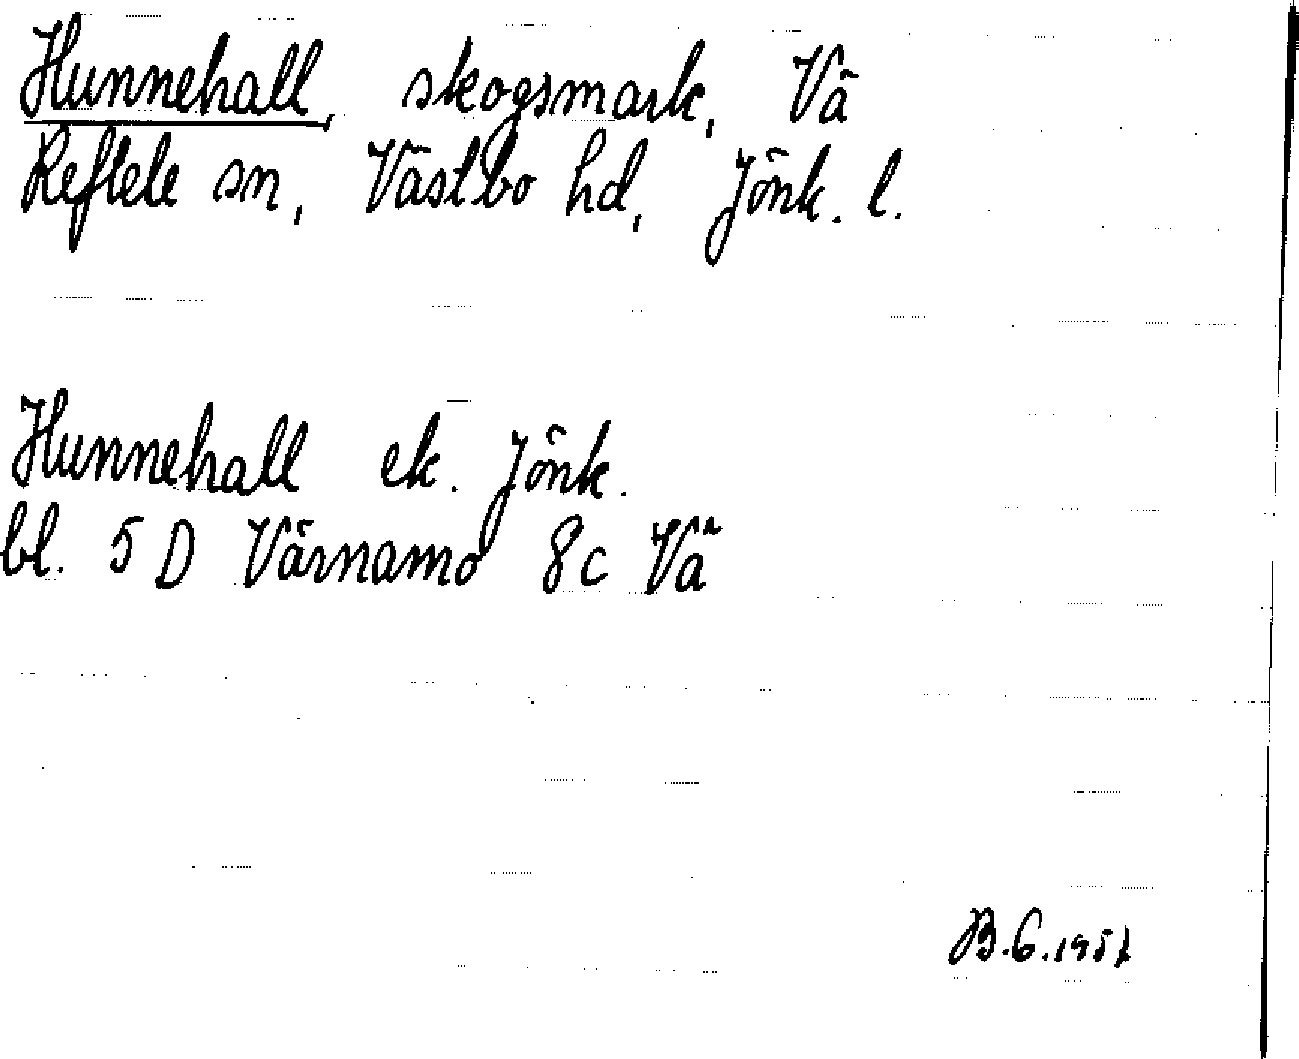 Hunnehall, skogsmark, Vä
Reftele sn, Västbo hd, Jönk. l.
Hunnehall ek. Jönk.
bl. 5 D Värnamo 8c Vä